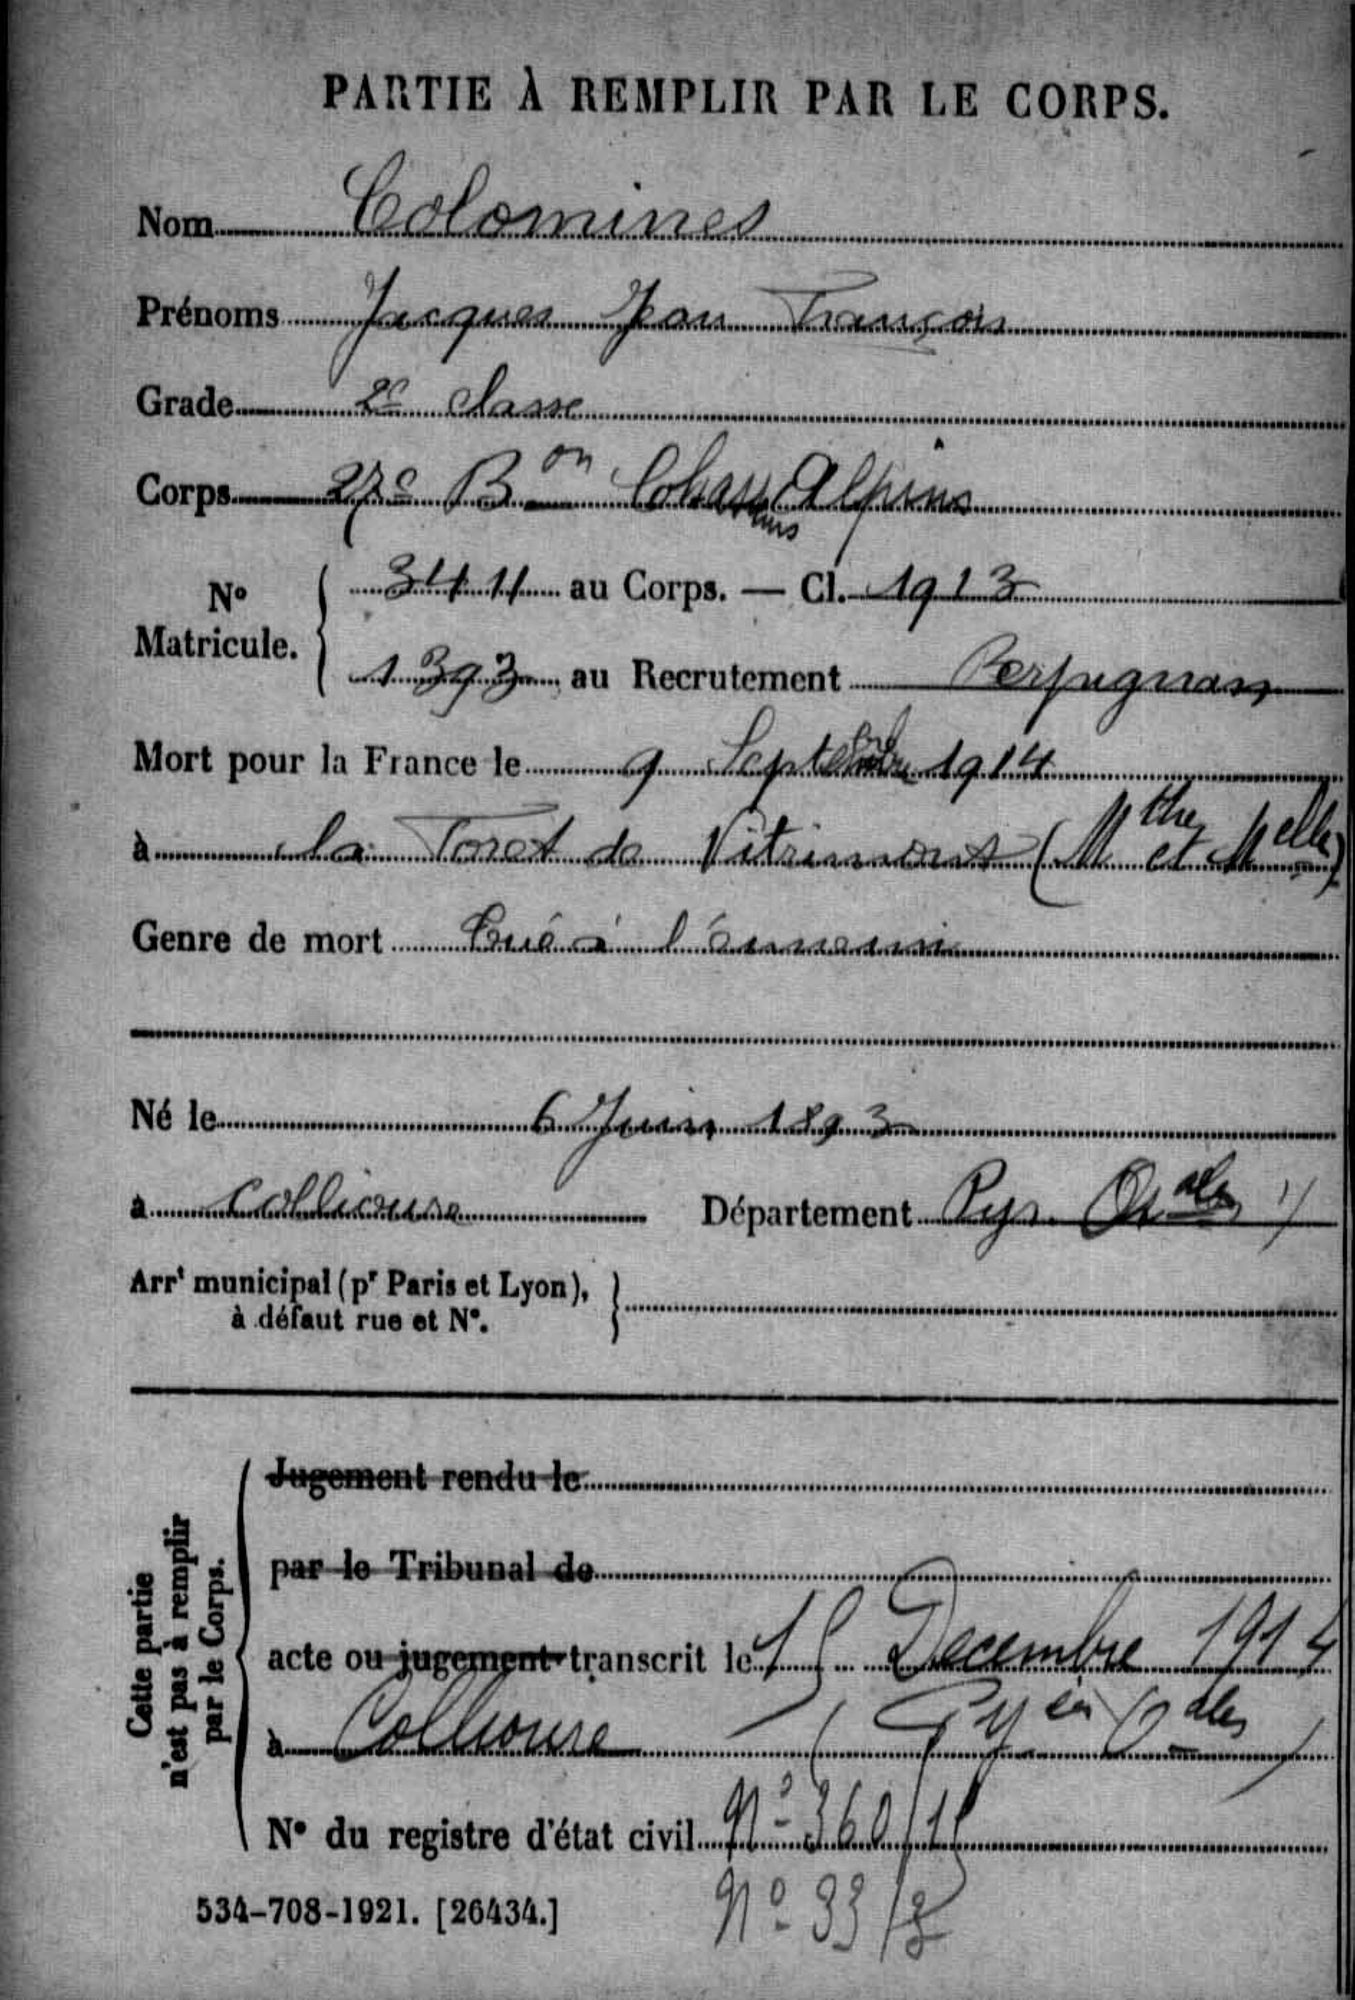 PARTIE À REMPLIR PAR LE CORPS.
Nom Colomines
Prénoms Jacques Jean François
Grade 2e classe
Corps 27e Bon Chasseurs Alpins
No Matricule. 3411 au Corps. — Cl. 1913
1393 au Recrutement Perpignan
Mort pour la France le 9 Septembre 1914
à la Foret de Vitrimont (Mthe et Melle)
Genre de mort Tué à l'ennemi
Né le 6 Juin 1893
à Collioure Département Pyr. Orales
Arrt municipal (pr Paris et Lyon),
à défaut rue et N°.
Cette partie
n'est pas à remplir
par le Corps.
Jugement rendu le
par le Tribunal de
acte ou jugement transcrit le 15 Decembre 1914
à Collioure (Pyées Oales)
N° du registre d'état civil No 360/15
534-708-1921. [26434.] No 33/